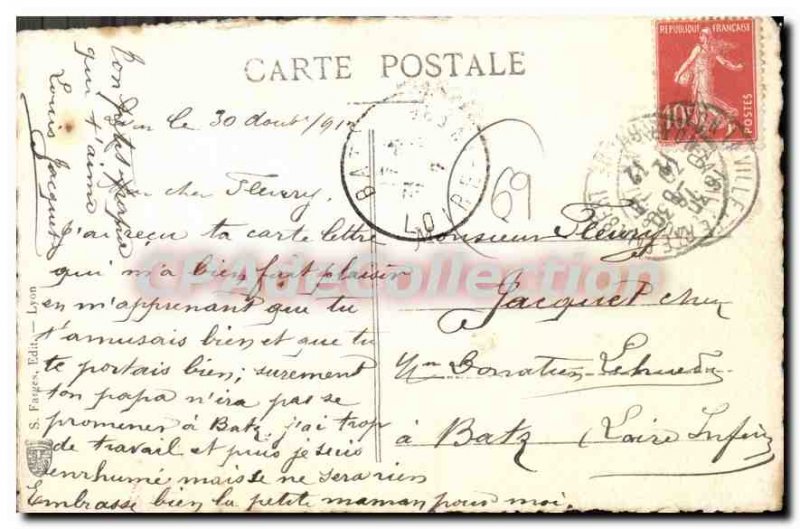 CARTE POSTALE
REPUBLIQUE FRANÇAISE
10c
POSTES
BATZ
LOIRE
69
le 30 Août 1912
cher Fleury,
J'ai reçu ta carte lettre
qui m'a bien fait plaisir
en m'apprenant que tu
t'amusais bien et que tu
te portais bien; surement
ton papa n'ira pas se
promener à Batz, j'ai trop
de travail et puis je suis
enrhumé mais se ne sera rien
Embrasse bien la petite maman pour moi.
Ton
qui t'aime
Louis Jacquet
Monsieur Fleury
Jacquet chez
à Batz (Loire Infre)
S. Farges, Edit. — Lyon
CPAdeCollection